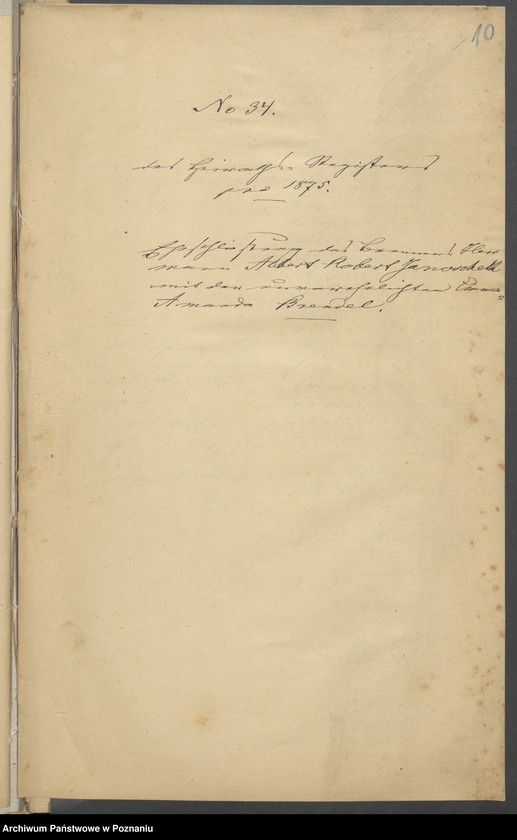 10
No 34.
des Heiraths-Registers
pro 1875.
Eheschließung des Brenners Herr
mann Albert Robert Janoschek
mit der unverehelichten Emma
Amanda Brendel.
Archiwum Państwowe w Poznaniu